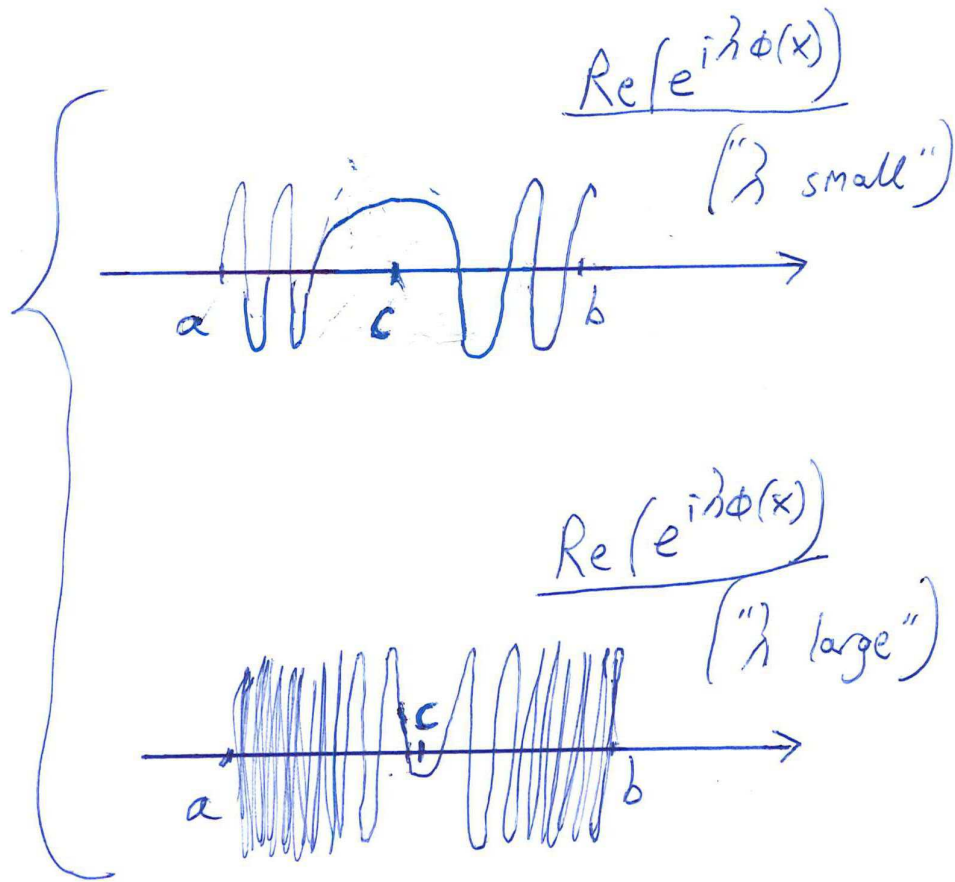 Re(e^{iλϕ(x)})
("λ small")
a c b
Re(e^{iλϕ(x)})
("λ large")
c
a b